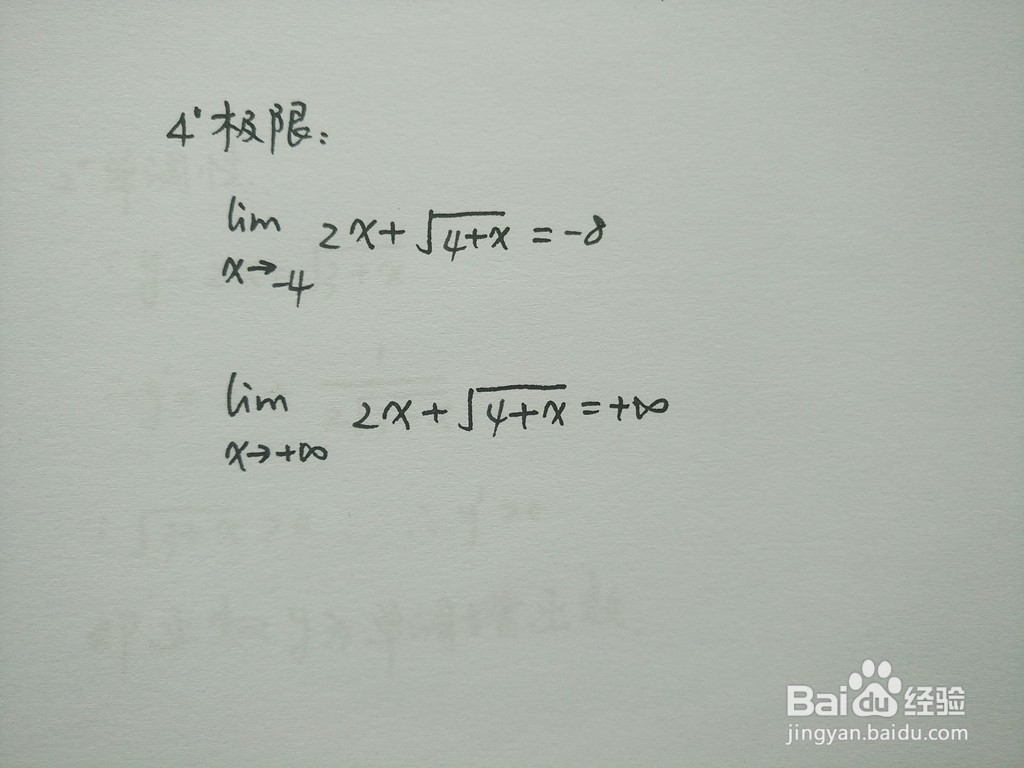 4°极限:
lim 2x+√4+x = -8
x→-4
lim 2x+√4+x = +∞
x→+∞
Bai du 经验
jingyan.baidu.com